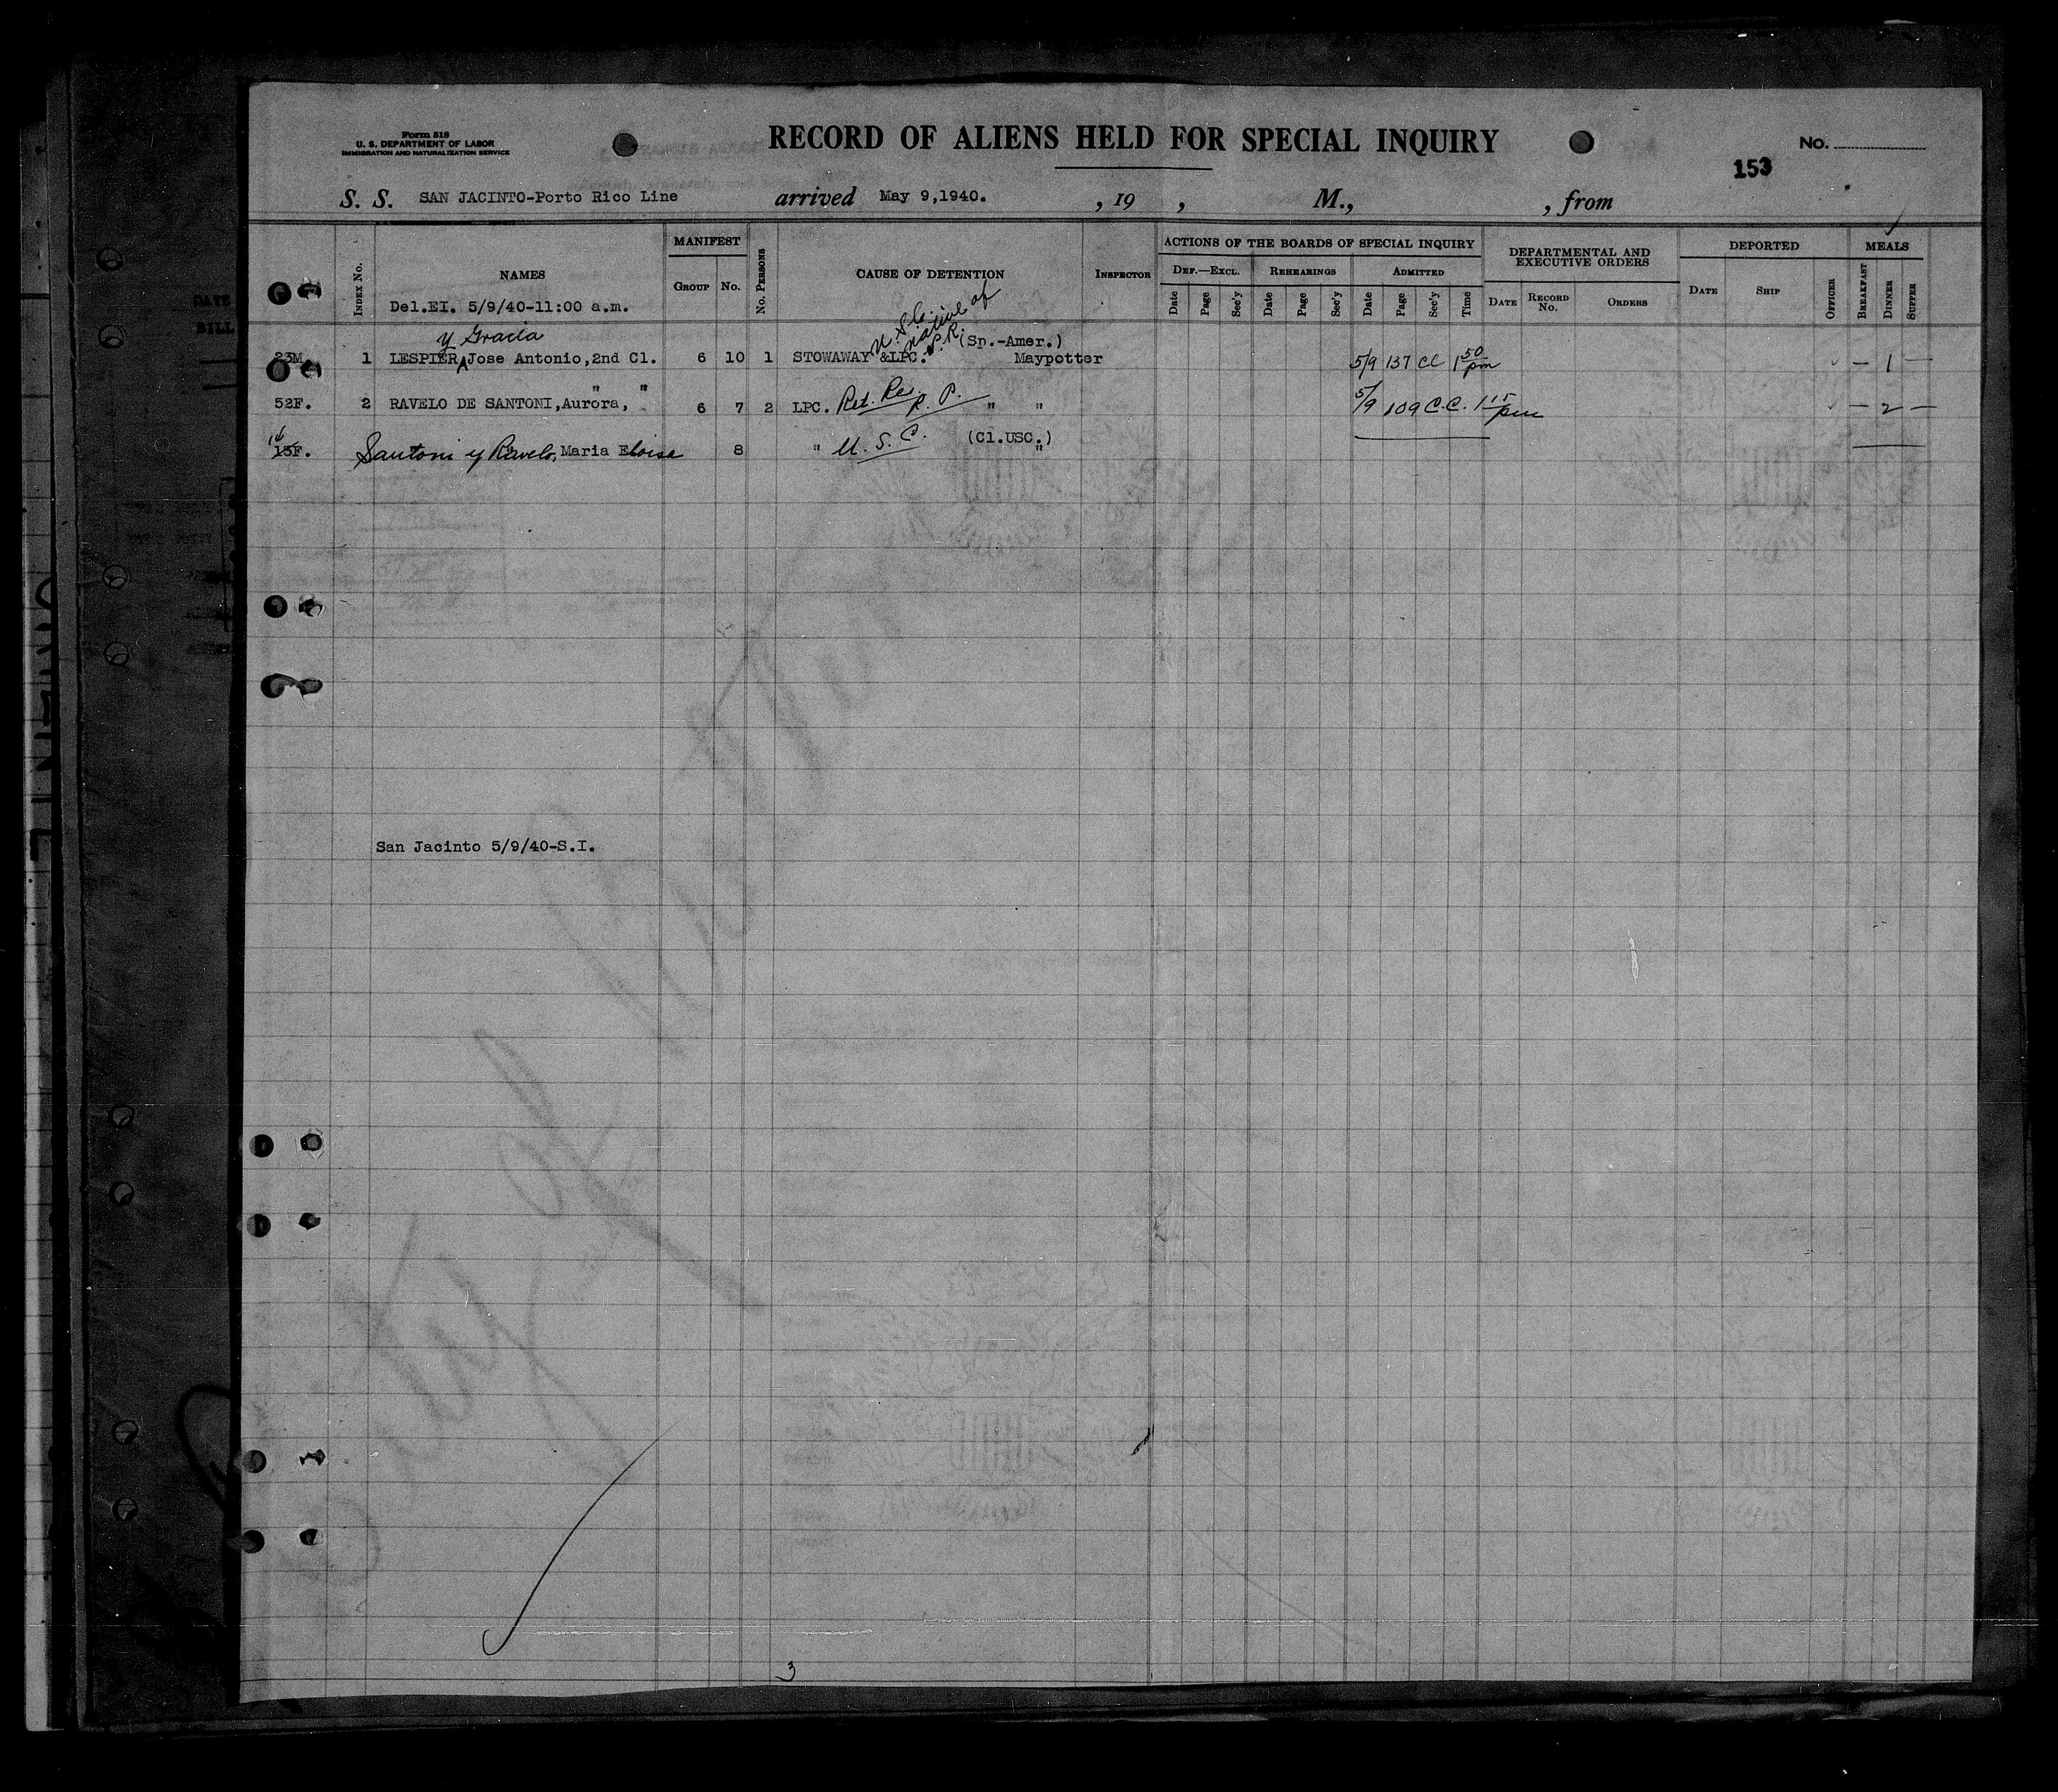 Form 518
U. S. DEPARTMENT OF LABOR
IMMIGRATION AND NATURALIZATION SERVICE
RECORD OF ALIENS HELD FOR SPECIAL INQUIRY
No.
153
S. S. SAN JACINTO-Porto Rico Line arrived May 9,1940. , 19 , M., , from
MANIFEST ACTIONS OF THE BOARDS OF SPECIAL INQUIRY DEPARTMENTAL AND EXECUTIVE ORDERS DEPORTED MEALS
Index No. NAMES Group No. No. Persons CAUSE OF DETENTION Inspector Def.—Excl. Rehearings Admitted
Date Page Sec'y Date Page Sec'y Date Page Sec'y Time Date Record No. Orders Date Ship Officer Breakfast Dinner Supper
Del.EI. 5/9/40-11:00 a.m.
U.S.C. native of P.R. (Sp.-Amer.)
y Gracia
23M 1 LESPIER, Jose Antonio,2nd Cl. 6 10 1 STOWAWAY &LPC. Maypotter 5/9 137 CC 1 50 pm — 1 —
" "
52F. 2 RAVELO DE SANTONI,Aurora, 6 7 2 LPC. Ret. Res. P. P. " " 5/9 109 C.C. 1 15 pm — 2 —
14
15F. Santoni y Ravelo, Maria Eloisa 8 " U.S.C. (Cl.USC.) "
San Jacinto 5/9/40-S.I.
3